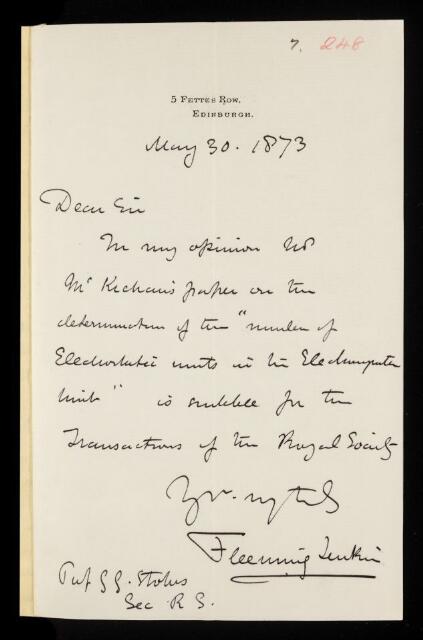 7. 248
5 FETTES ROW,
EDINBURGH.
May 30. 1873
Dear Sir
In my opinion
Mc Kichan's paper on the
determination of the "number of
Electrostatic units in the Electromagnetic
Unit" is suitable for the
Transactions of the Royal Society
Yrs. my truly
Fleeming Jenkin
Prof G G. Stokes
Sec R S.